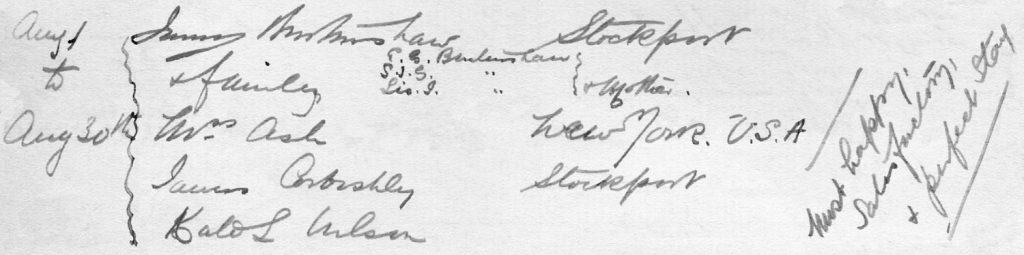 Aug 1 James Birkinshaw Stockport
to & family
T. E. Birkinshaw
S. J. G. "
" & Mother.
Aug 30th Mrs Ash New York. U.S.A
James Corbishley Stockport
Kate L Wilson
Most happy,
satisfactory,
& perfect stay